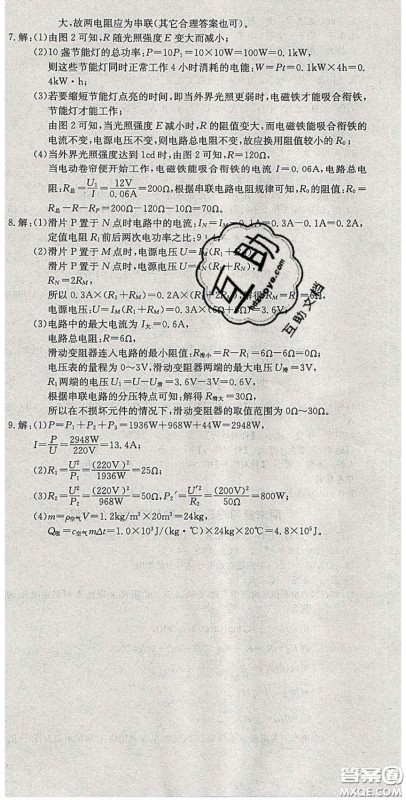 大,故两电阻应为串联(其它合理答案也可)。
7.解:(1)由图2可知,R随光照强度E变大而减小;
(2)10盏节能灯的总功率:P=10P₁=10×10W=100W=0.1kW,
则这些节能灯同时正常工作4小时消耗的电能:W=Pt=0.1kW×4h=0.
4kW·h;
(3)若要缩短节能灯点亮的时间,即当外界光照更弱时,电磁铁才能吸合衔铁,
节能灯才能工作;
由图2可知,当光照强度E减小时,R的阻值变大,而电磁铁能吸合衔铁的
电流不变,电源电压不变,则电路总电阻不变,故应换用阻值较小的R₀;
(4)当外界光照强度达到1cd时,由图2可知,R=120Ω,
当电动卷帘便开始工作,电磁铁能吸合衔铁的电流I=0.06A,电路总电
阻:R总=U₁/I=12V/0.06A=200Ω,根据串联电路电阻规律可知,R₀的阻值:R₀=
R总-R-R=200Ω-10Ω-120Ω=70Ω。
8.解:(1)滑片P置于N点时电路中的电流:I_N=0.3A-0.1A=0.2A,
定值电阻R₁前后两次电功率之比:9
(2)滑片P置于M点时,电源电压U=I_M(R₁+
滑片P置于N点时,电源电压U=I_N(R₁+R_N),
R_N=2R_M,
所以0.3A×(R₁+R_M)=0.2A×(R₁+
电源电压:U=I_M(R₁+R_M)=3.6V;
(3)电路中的最大电流为I大=0.6A,
电路总电阻:R=6Ω,
滑动变阻器连入电路的最小阻值:R滑小=R-R₁=6Ω-6Ω=0Ω,
电压表的量程为0~3V,滑动变阻器两端的最大电压U滑=3V,
R₁两端的电压为U₁=U-U滑=3.6V-3V=0.6V,
根据串联电路的分压特点可知:R滑=30Ω,
所以在不损坏元件的情况下,滑动变阻器的取值范围为0Ω~30Ω。
9.解:(1)P=P₁+P₂+P₃=1936W+968W+44W=2948W,
I=P/U=2948W/220V=13.4A;
(2)R₁=U²/P₁=(220V)²/1936W=25Ω;
(3)R₂=U²/P₂=(220V)²/968W=50Ω,P₂'=U'²/R₂=(200V)²/50Ω=800W;
(4)m=ρ空气V=1.2kg/m³×20m³=24kg,
Q吸=c空气mΔt=1.0×10³J/(kg·℃)×24kg×20℃=4.8×10⁵J。
互助
hdzuoye.com
互助文档
答案圈
MXQE.COM